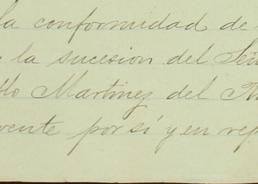 la conformidad de
la sucesion del Señ
Martinez del
por sí y en rep